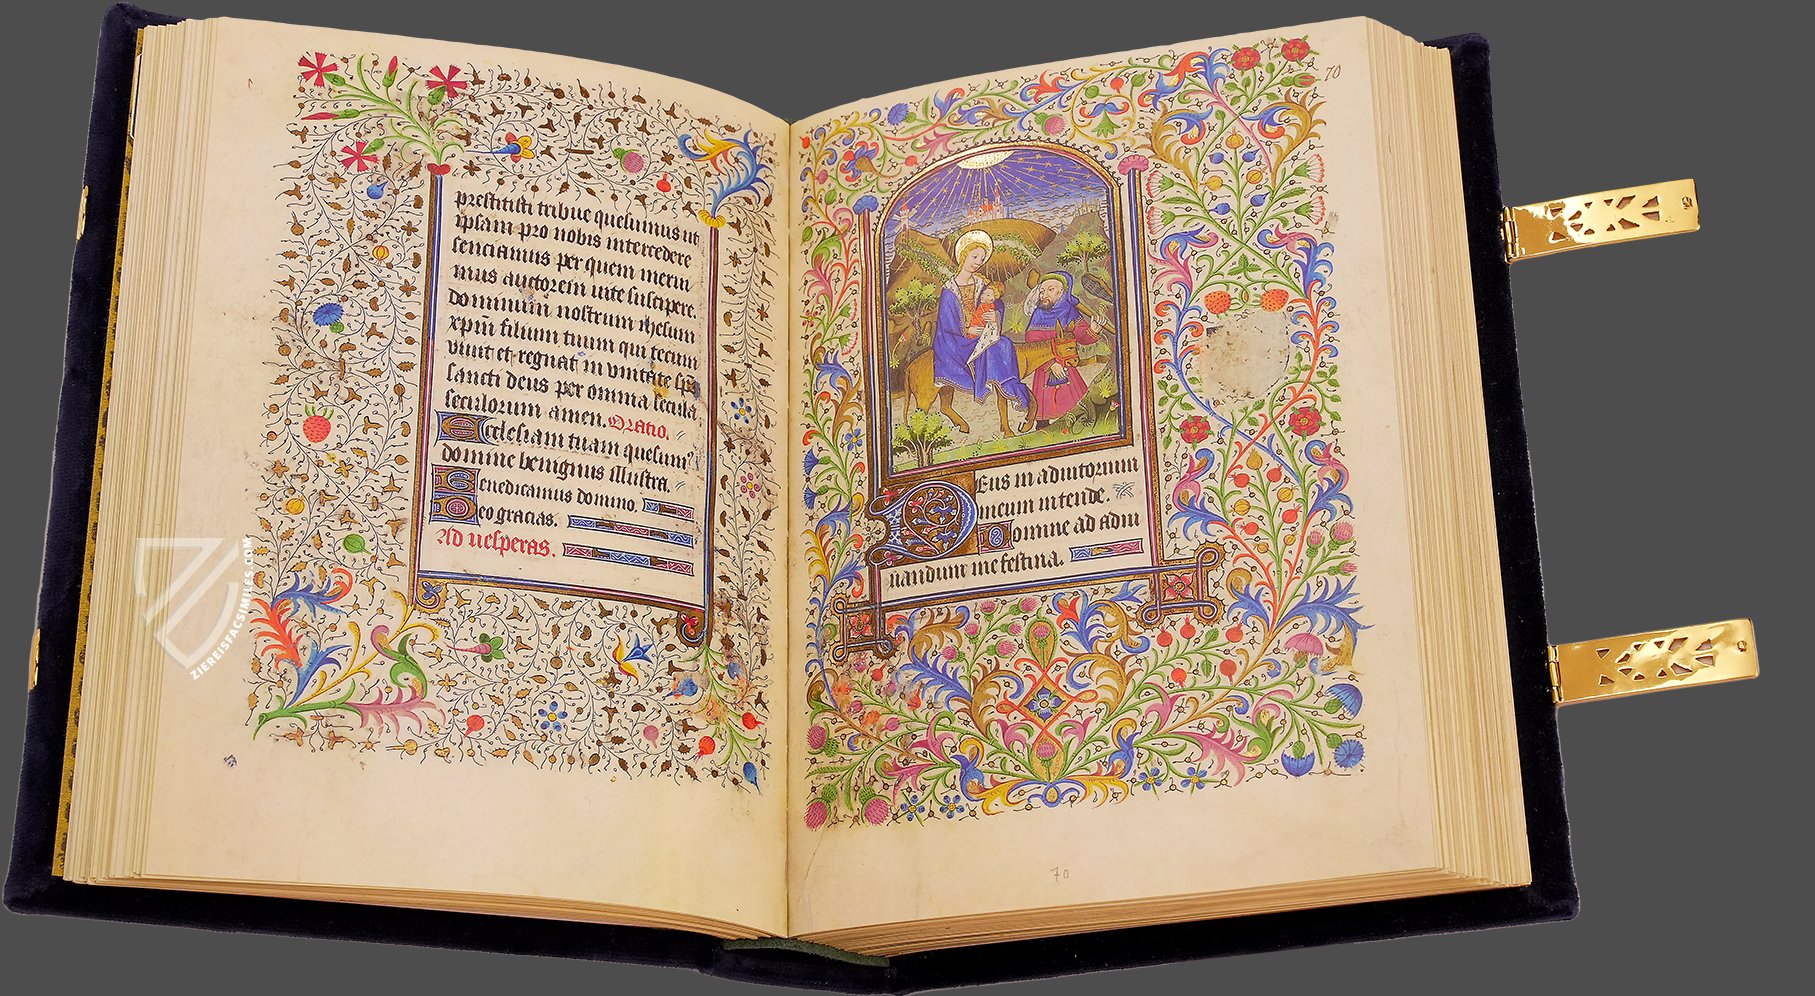 prestitisti tribue quesumus ut
ipsam pro nobis intercedere
senciamus per quem merui
mus auctorem uite suscipere.
dominum nostrum ihesum
xp̄m filium tuum qui tecum
viuit et regnat in vnitate sp̄s
sancti deus per omnia secula
seculorum amen. Oratio.
Ecclesiam tuam quesum9
domine benignus illustra.
Benedicamus domino.
Deo gracias.
Ad uesperas.
70
Deus in adiutorium
meum intende.
Domine ad adiu
uandum me festina.
70
ZIEREISFACSIMILES.COM